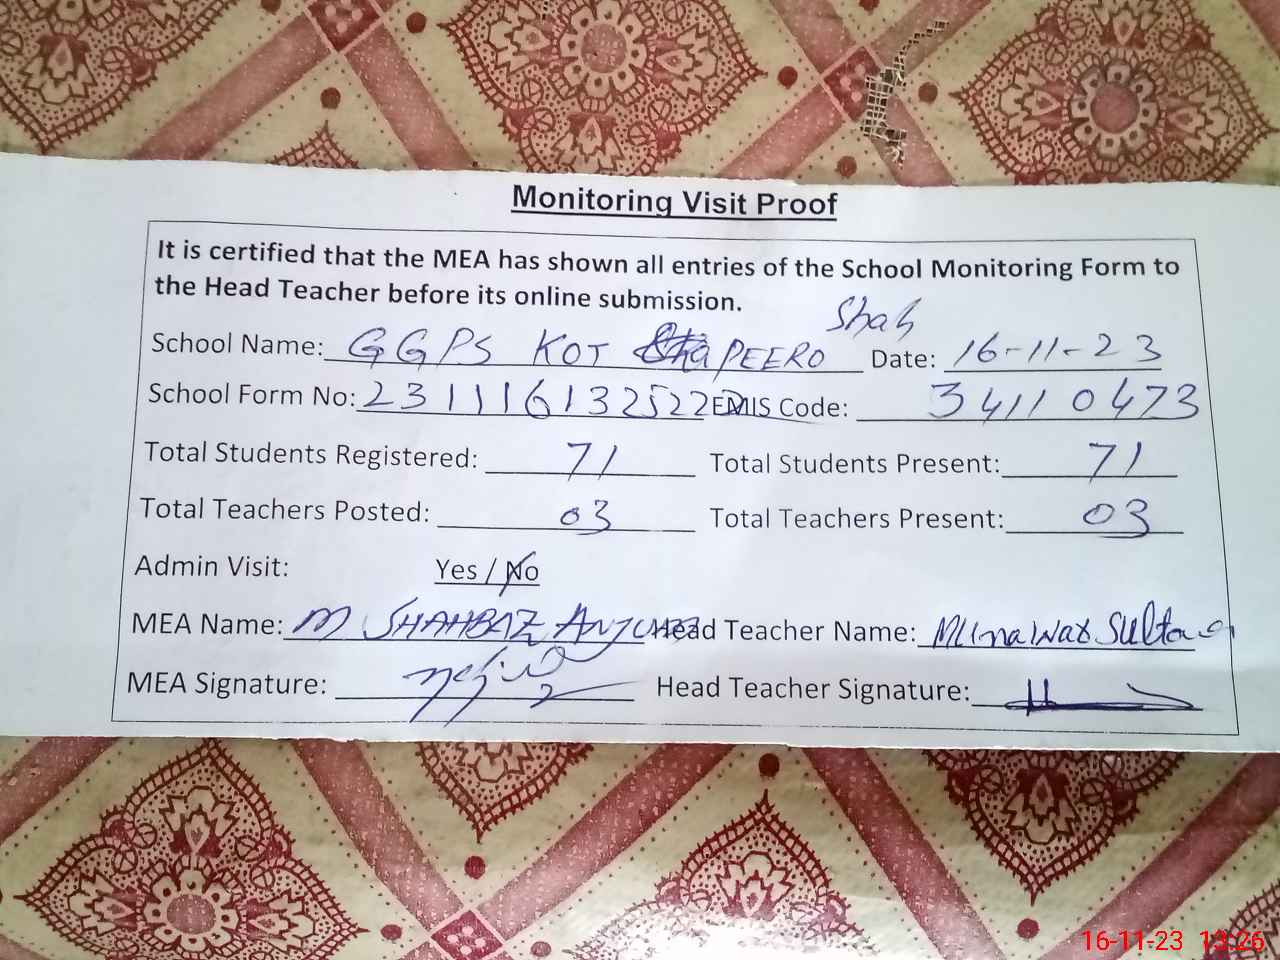 Monitoring Visit Proof
It is certified that the MEA has shown all entries of the School Monitoring Form to
the Head Teacher before its online submission.
School Name: GGPS KOT PEERO Shah Date: 16-11-23
School Form No: 231116132522 EMIS Code: 34110473
Total Students Registered: 71 Total Students Present: 71
Total Teachers Posted: 03 Total Teachers Present: 03
Admin Visit: Yes / No
MEA Name: M SHAHBAZ ANJUM Head Teacher Name: Munawar Sultana
MEA Signature: Head Teacher Signature:
16-11-23 13:26